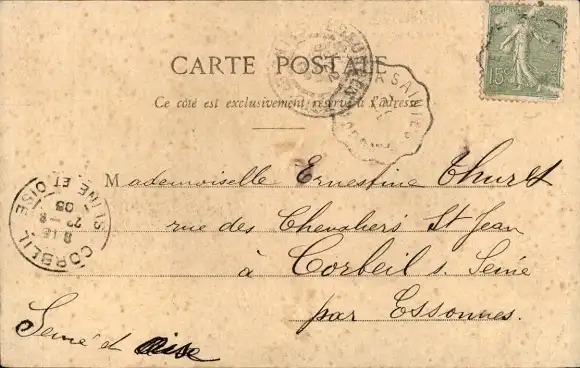 CARTE POSTALE
Ce côté est exclusivement réservé à l'adresse
15
Mademoiselle Ernestine Thuret
rue des Chevaliers St Jean
à Corbeil s. Seine
par Essonnes.
Seine et Oise
CORBEIL
SEINE ET OISE
8 15
22 - 8
05